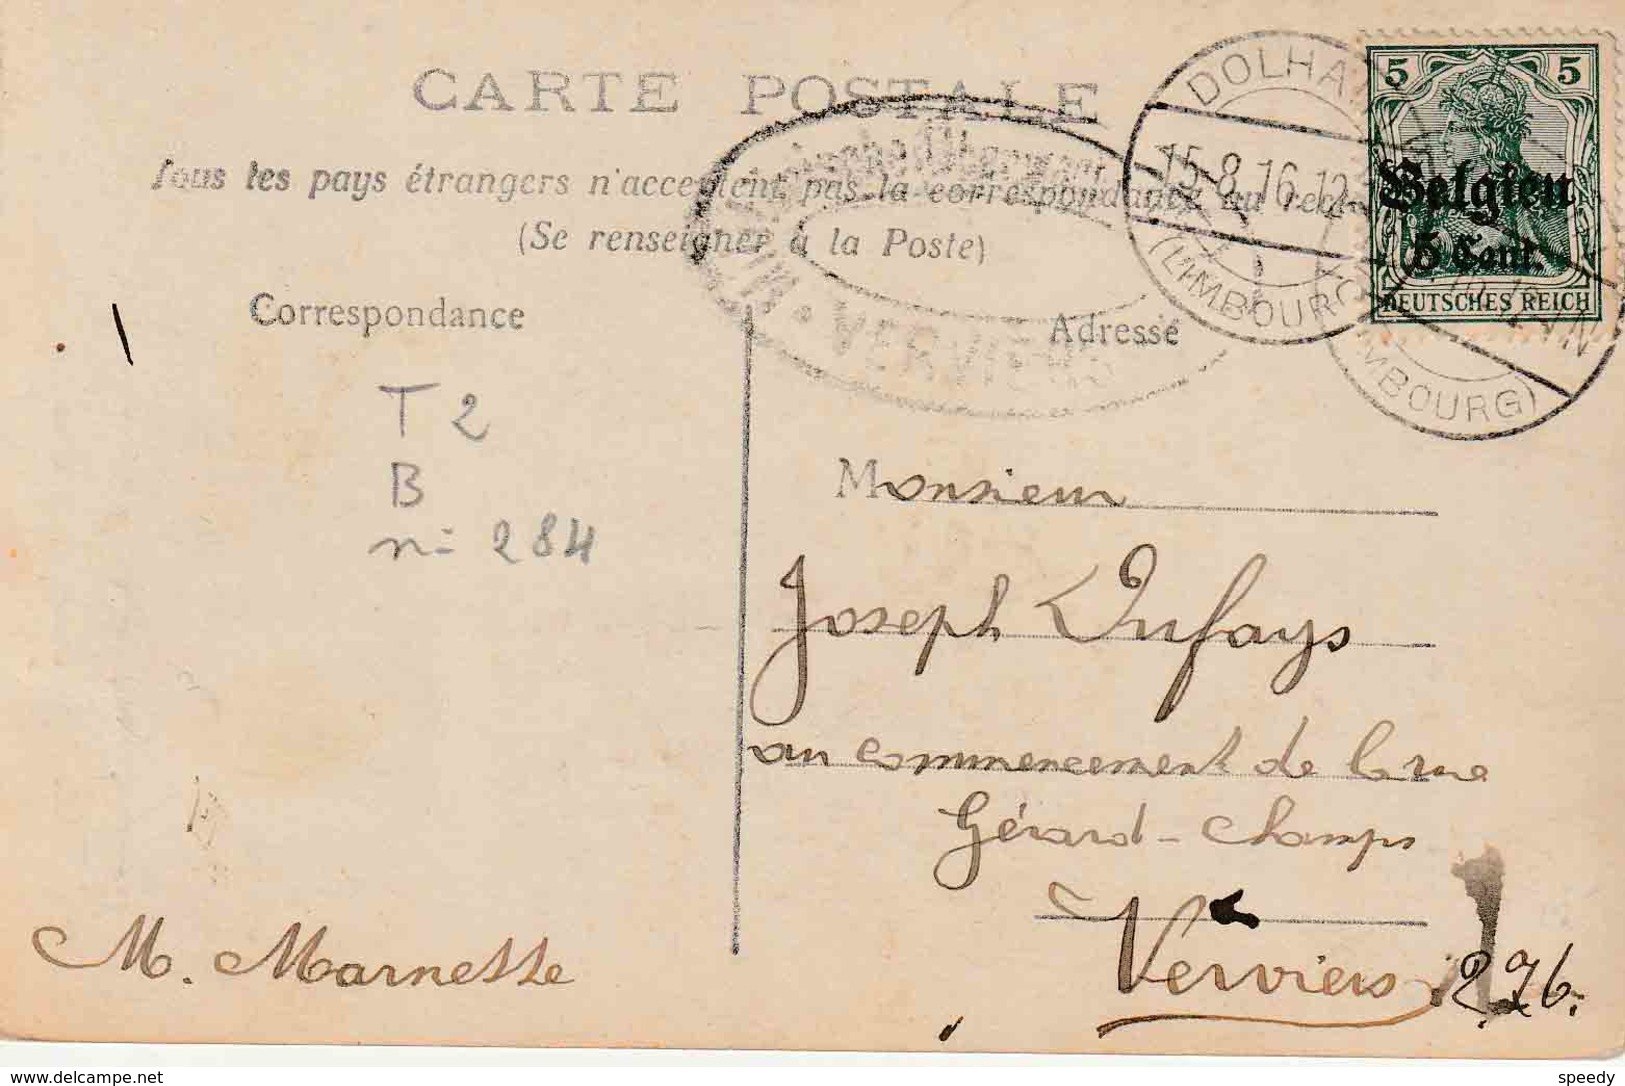 CARTE POSTALE
Tous les pays étrangers n'acceptent pas la correspondance au recto
(Se renseigner à la Poste)
Correspondance
Adresse
DOLHAIN
15.8.16.12
(LIMBOURG)
(LIMBOURG)
5 5
Belgien
5 Cent.
DEUTSCHES REICH
VERVIERS
T 2
B
n° 284
Monsieur
Joseph Dufays
au commencement de la rue
Gérard-Champs
Verviers
276.
M. Marnette
www.delcampe.net
speedy